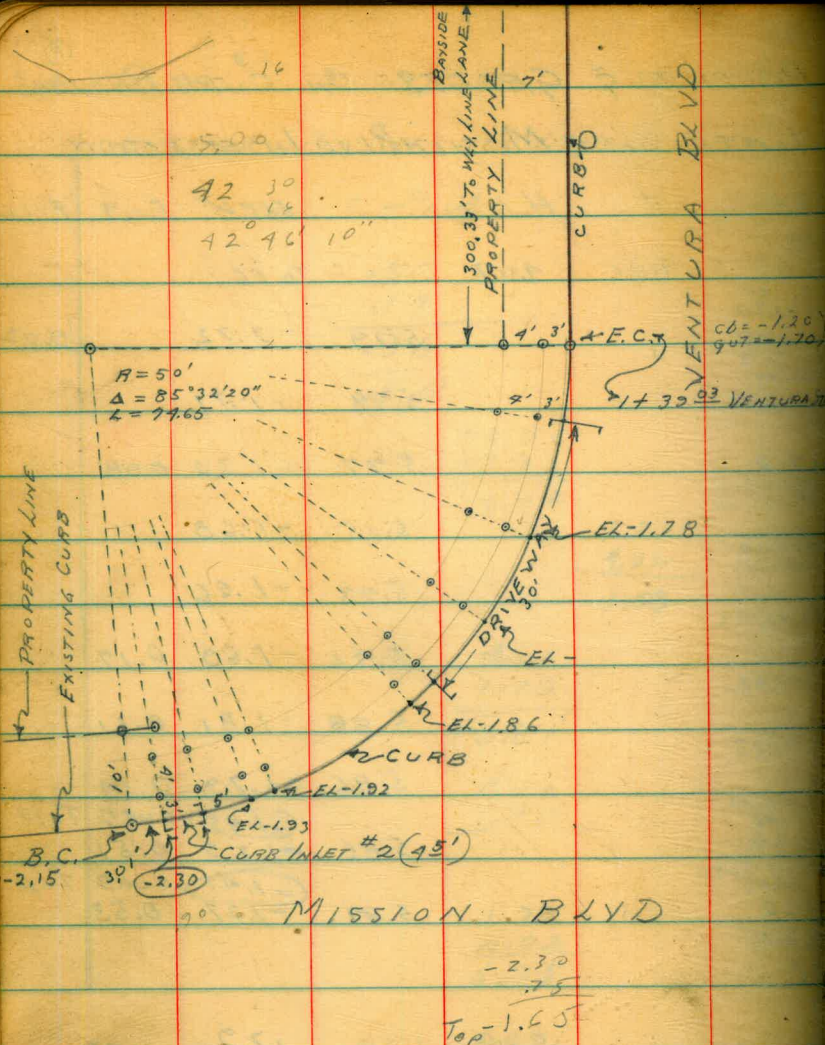 16
5.00
42 30
16
42° 46' 10"
BAYSIDE
300.33' TO WLY, LINE LANE
PROPERTY LINE
7'
CURB
VENTURA BLVD
4' 3' E.C.
cb = -1.20
gut = -1.70
1+39 03 VENTURA
R = 50'
Δ = 85°32'20"
L = 74.65
4' 3'
EL-1.78
DRIVEWAY
30'
EL-
EL-1.86
CURB
PROPERTY LINE
EXISTING CURB
10'
4'
3'
5'
EL-1.92
EL-1.93
B.C.
-2.15
3.0' 1'
-2.30
CURB INLET #2 (4 5')
MISSION BLVD
-2.30
.75
Top -1.65